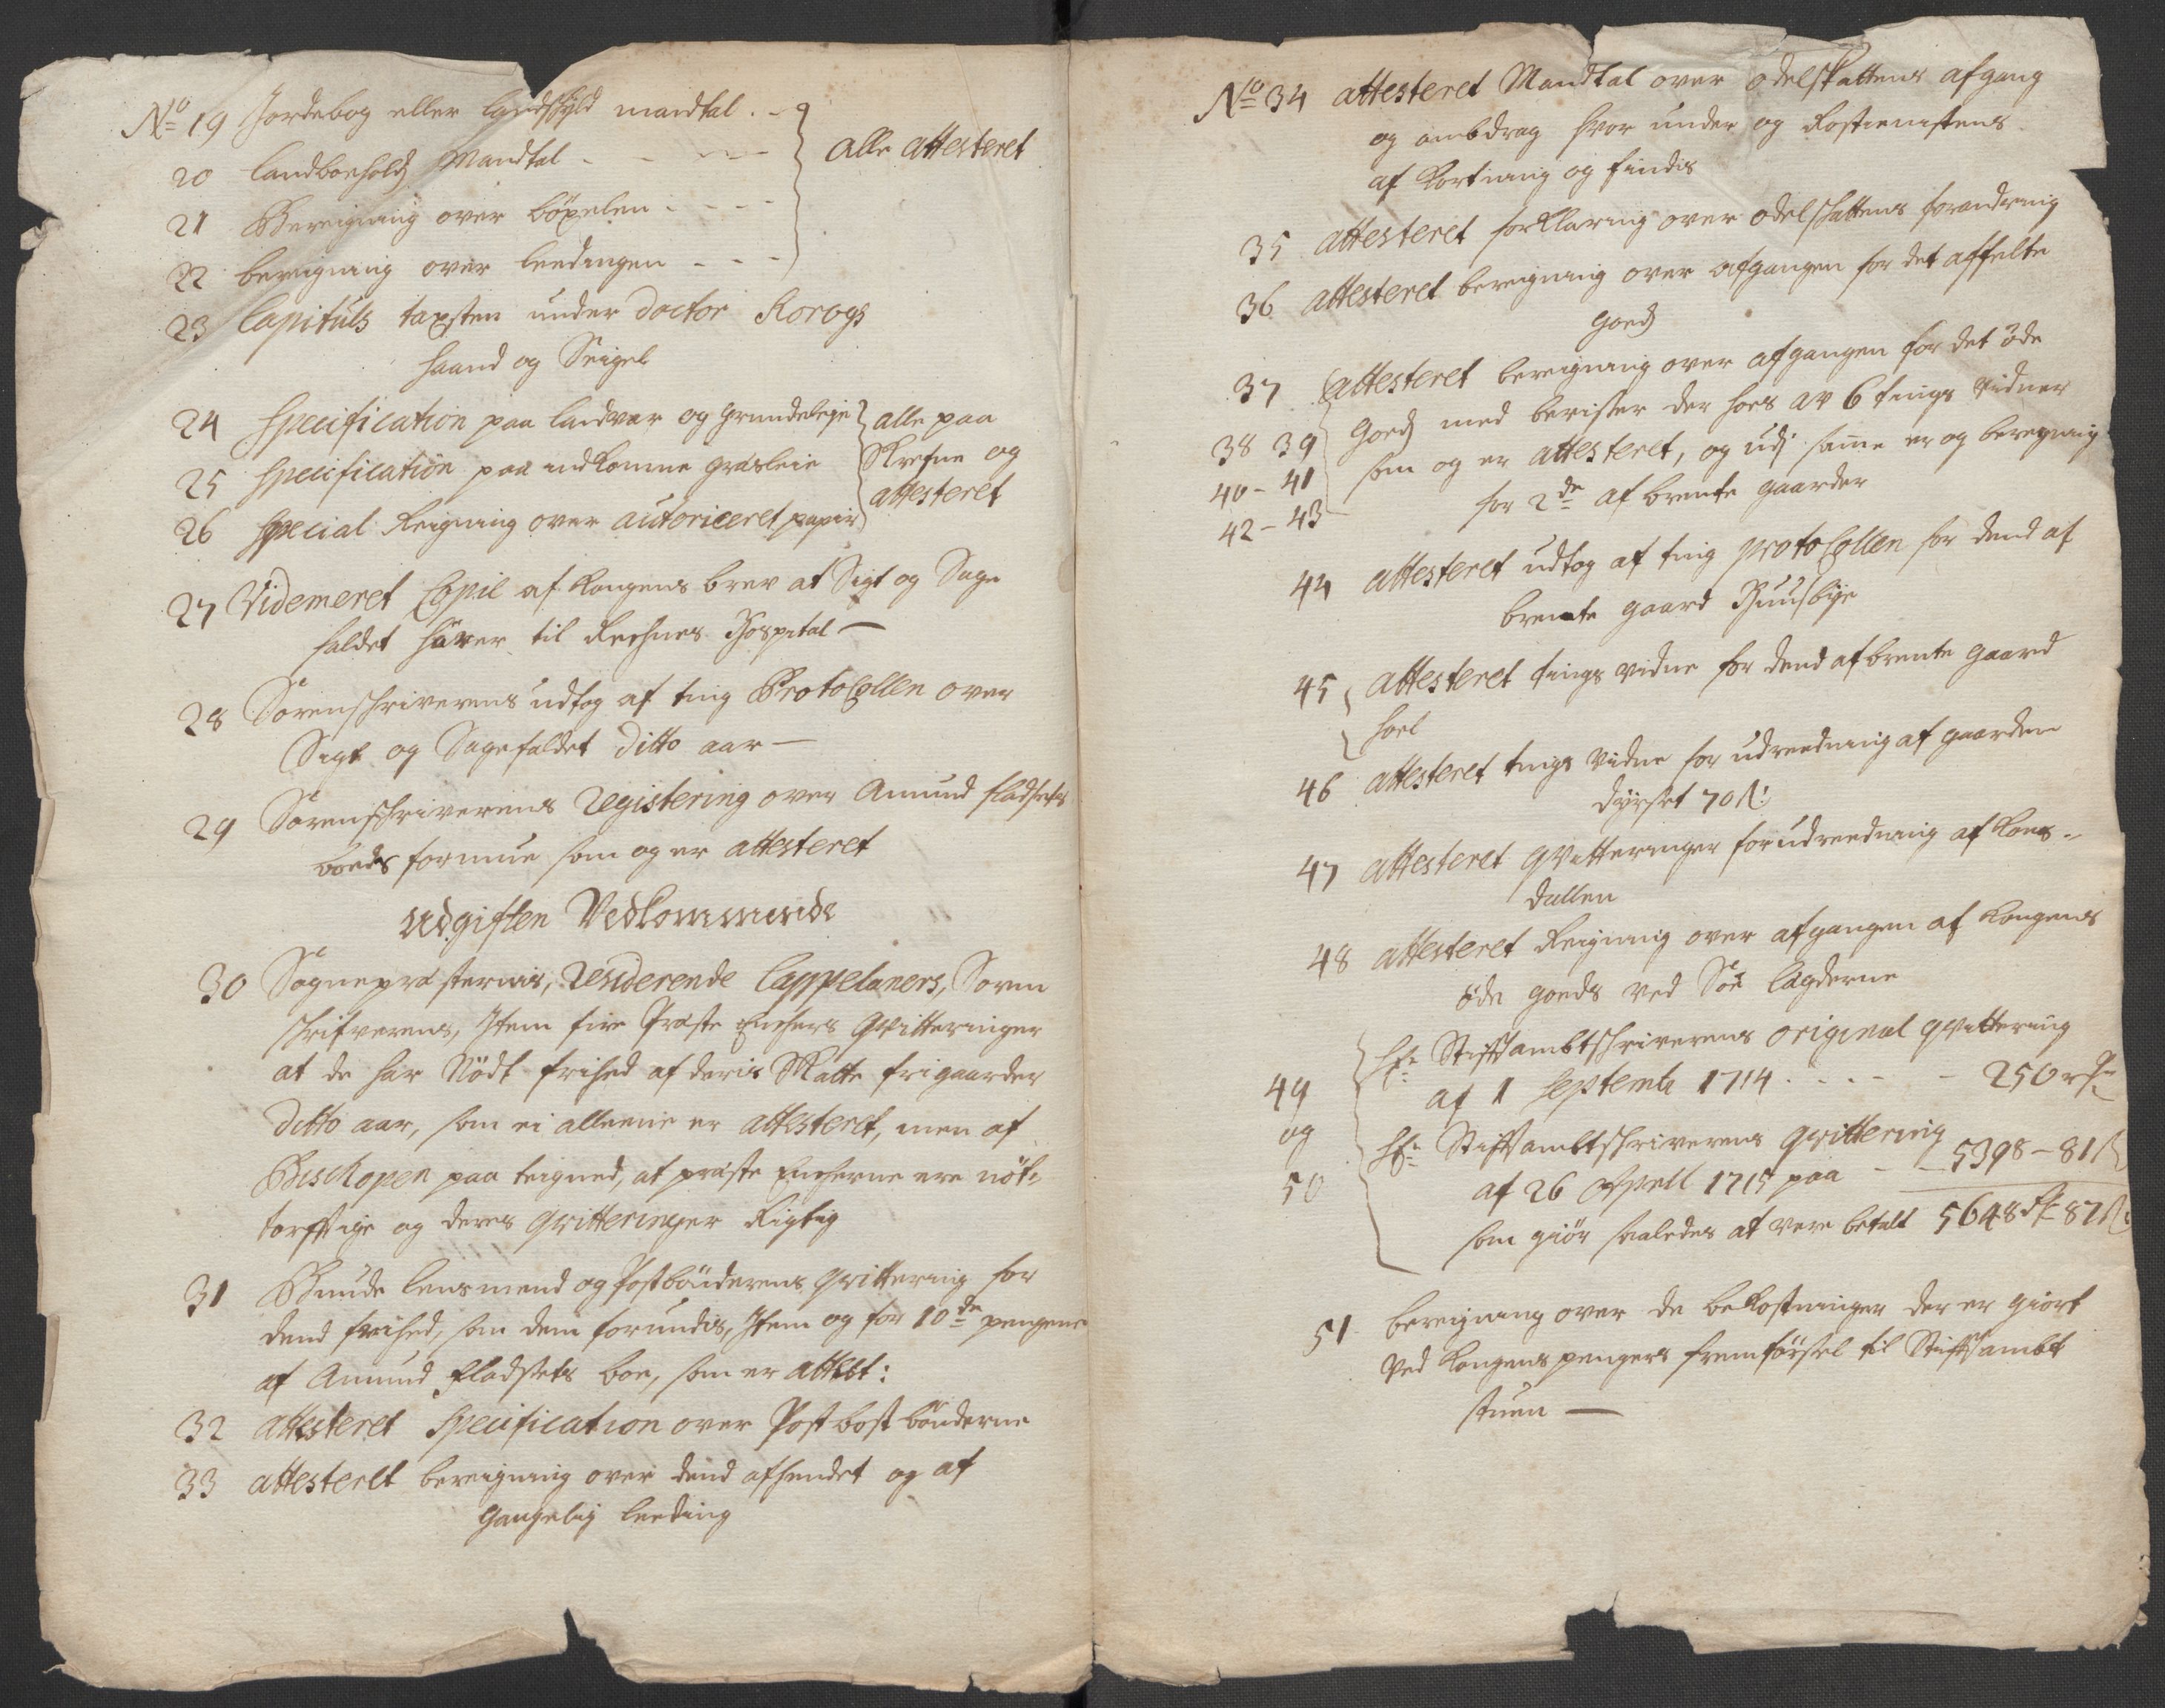 No 19 Jordebog eller landskyld mandtal . -
alle attesteret
20 landboehold Mandtal - - - -
21 Bereigning over böxelen - - - -
22 bereigning over leedingen - - -
23 Capituls taxsten under doctor Korogs
haand og Seigel
24 Specification paa landvar og grundeleje
alle paa
25 Specification paa indkomne grasleie
Skrefne og
26 Special Reigning over autoriceret papir
attesteret
27 Videmeret Copie af Kongens brev at Sigt og Sage
faldet hörer til Reehnes Hospital —
28 Sorenschriverens udtog af ting Protocollen over
Sigt og Sagefaldet ditto aar —
29 Sorenschriverens Registering over Amund fladsets
boeds formue som og er attesteret
Udgiften Vedkommende
30 Sognepræsternis, Residerende Cappelaners, Soren
schrifverens, Item fire Præste Encher Qvitteringer
at de har Nödt frihed af deris Skatte frigaarder
ditto aar, som ei alleene er attesteret, men af
Biskopen paa teigned, at præste Encherne ere nöt-
törfftige og deres Qvitteringer Rigtig
31 Bunde lensmend og Postböndernes Qvittering for
dend frihed, som dem forundis, Item og for 10de pengene
af Amund Fladsets boe, som er attest:
32 attesteret Specification over Post bost bönderne
33 attesteret bereigning over dend afhendet og af
gangelig leeding
No 34 attesteret Mandtal over odelskattens afgang
og ombdrag hvor under og Rostienistens
af Kortning og findis
35 attesteret forklaring over odelschattens forandring
36 attesteret bereigning over afgangen for det affelte
goeds
37 attesteret bereigning over afgangen for det öde
38 39 Goeds med beviser der hoes av 6 tings vidner
40 - 41 som og er attesteret, og udj same er og beregning
42 - 43 for 2de af brente gaarder
44 attesteret udtog af ting protocollen for dend af
brente gaard Huusbye
45 attesteret tings vidne for dend afbrente gaard
hoel
46 attesteret tings vidne for udreedning af gaarden
dyrset 70 ß:
47 attesteret Qvitteringer for udreedning af Roms-
dallen
48 attesteret Reigning over afgangen af Kongens
öde goeds ved Söe lægderne
Hr: Stifftambtschriverens original qvittering
49 af 1 Septembr 1714 - - - - - 250 rdr
og Hr: Stifftambtschriverens qvittering
50 af 26 Aprill 1715 paa - - 5398 - 81 ß
som giör saaledes at vere betalt 5648 rdr 87 ß
51 bereigning over de bekostninger der er giort
ved Kongens pengers fremförsel til Stifftambt
stuen —